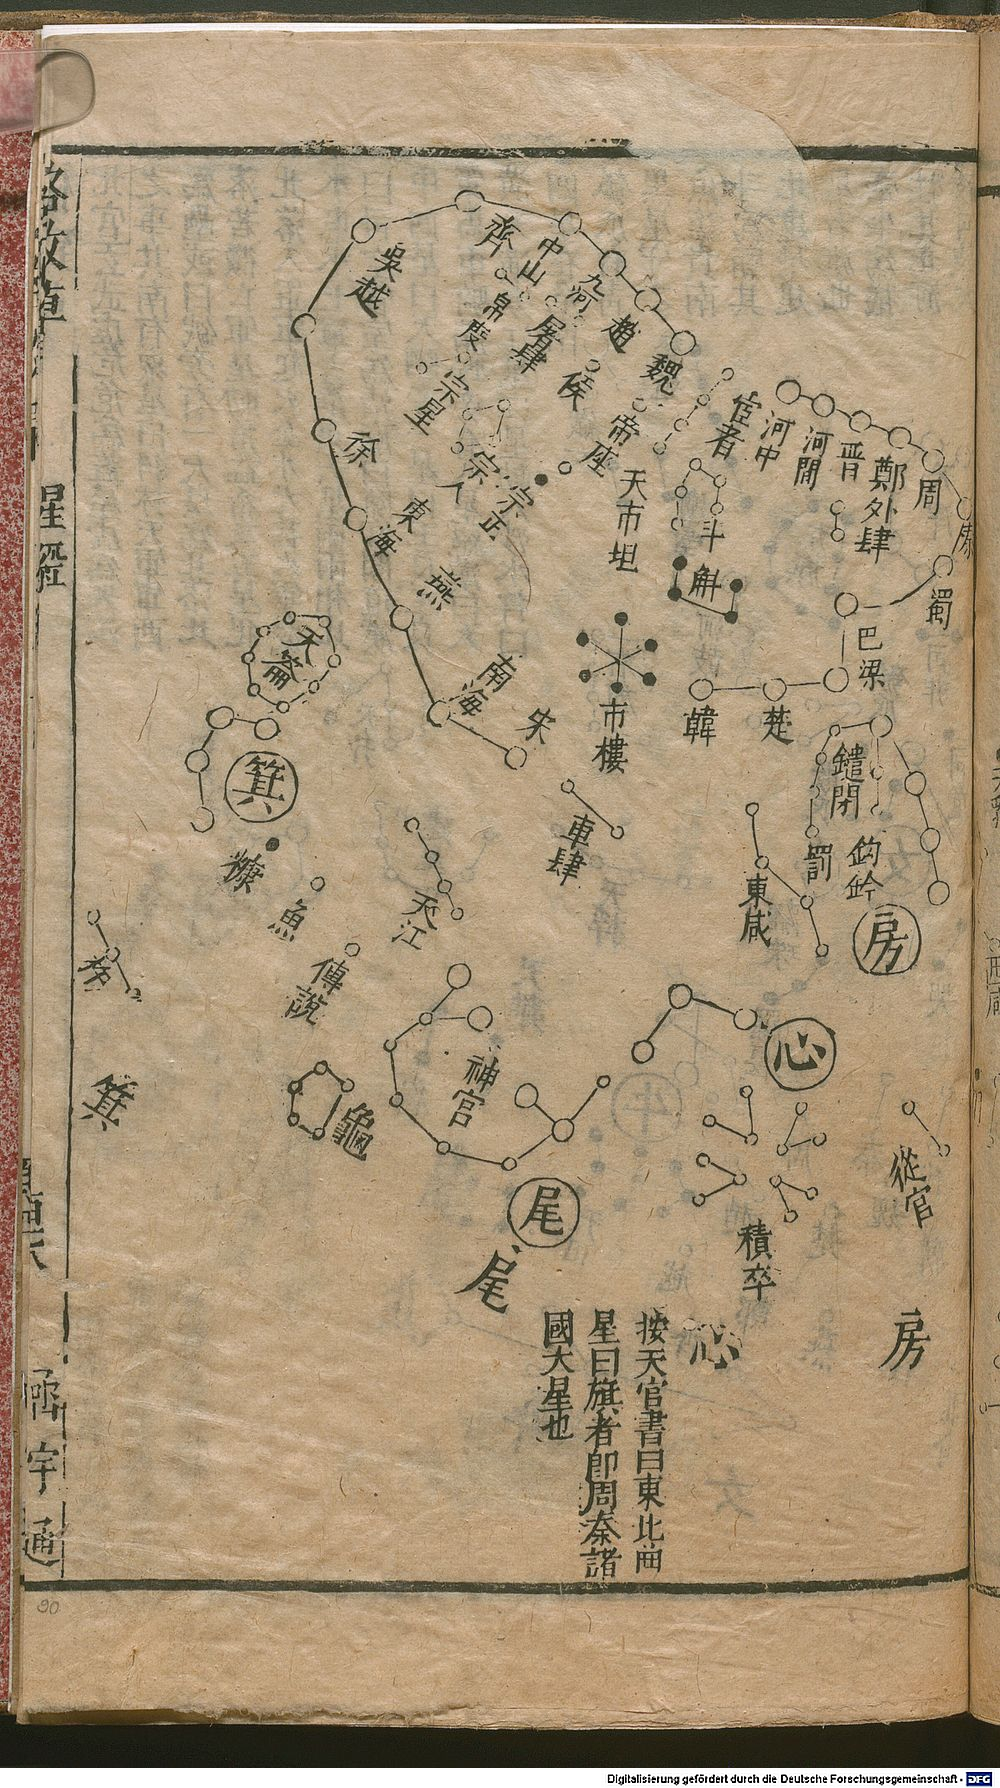 齊
吳越
中山
九河
趙
魏
帛度
屠肆
侯
帝座
宦者
河中
河間
晋
鄭
周
外肆
蜀
宗星
宗人
宗正
天市垣
斗
斛
徐
東海
燕
南海
宋
市樓
韓
楚
巴
梁
天籥
箕
糠
魚
傅說
天江
車肆
東咸
罰
鍵閉
鈎鈐
房
心
神宮
龜
尾
尾
積卒
從官
杵
箕
心
房
按天官書曰東北曲
星曰旗者即周秦諸
國大星也
格致草
函宇通
90
Digitalisierung gefördert durch die Deutsche Forschungsgemeinschaft - DFG